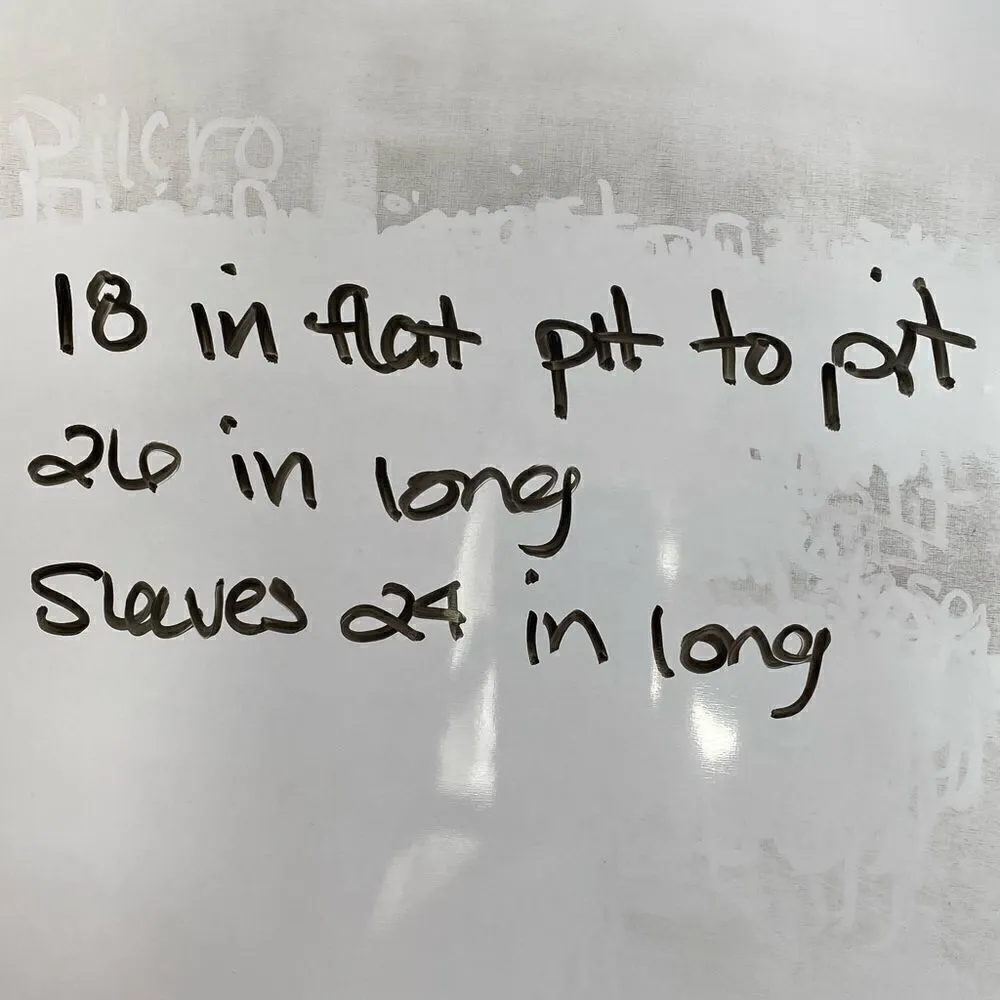 Pilcro
18 in flat pit to pit
26 in long
Sleeves 24 in long